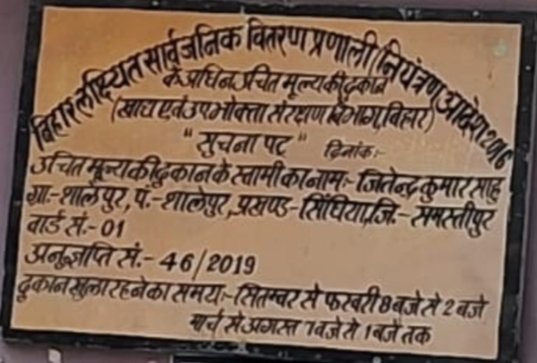 बिहार लक्ष्यित सार्वजनिक वितरण प्रणाली नियंत्रण आदेश 2016
के अधिन उचित मूल्य की दुकान
(खाद्य एवं उपभोक्ता संरक्षण विभाग, बिहार)
"सुचना पट" दिनांक:-
उचित मूल्य की दुकान के स्वामी का नाम:- जितेन्द्र कुमार साहु
ग्रा:- शालेपुर, पं.- शालेपुर, प्रखण्ड- सिंघिया, जि.- समस्तीपुर
वार्ड सं.- 01
अनुज्ञप्ति सं.- 46/2019
दुकान खुला रहने का समय:- सितम्बर से फरवरी 8 बजे से 2 बजे
मार्च से अगस्त 7 बजे से 1 बजे तक